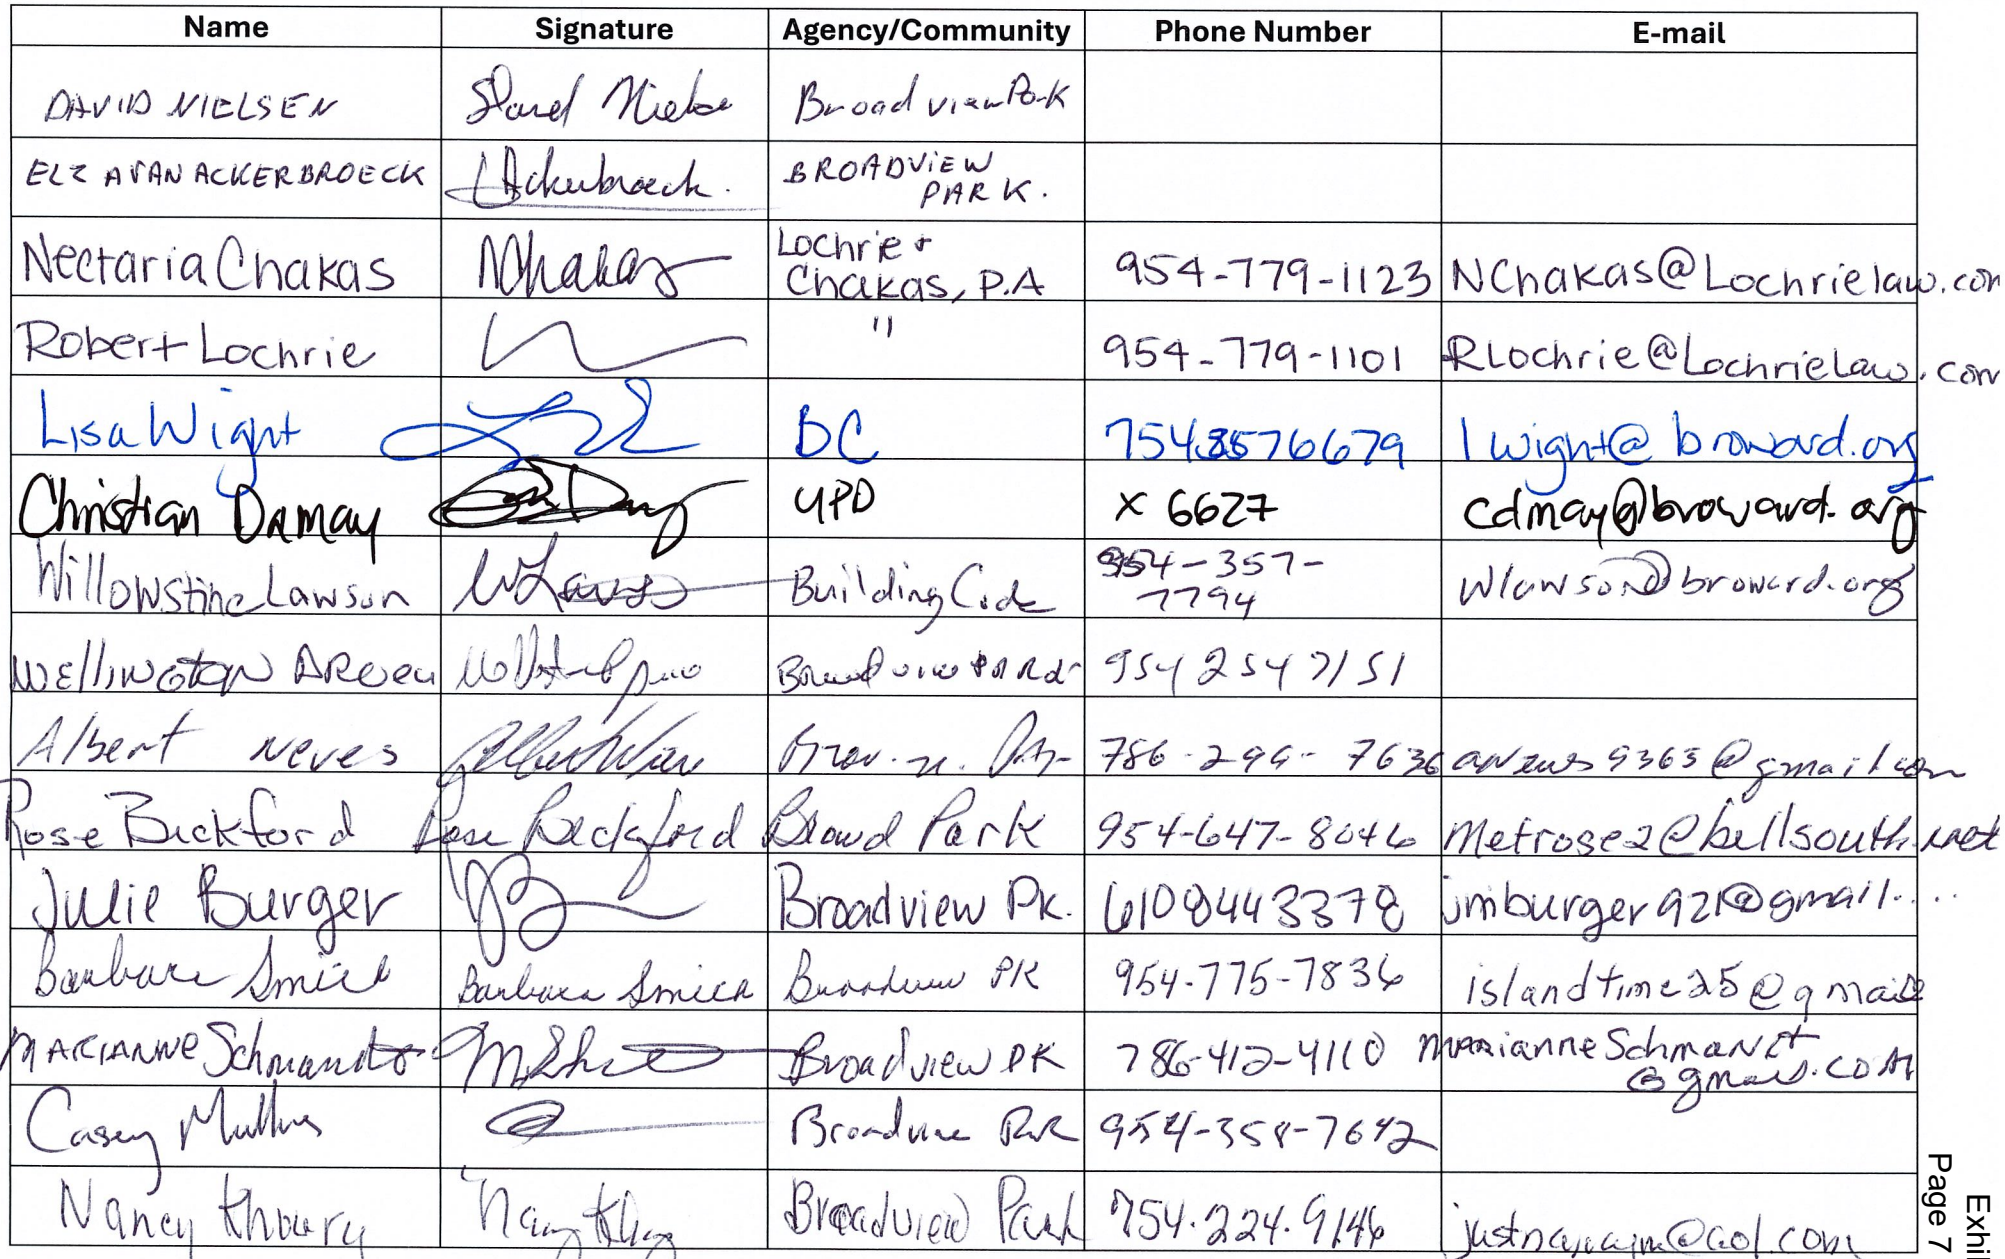 Name Signature Agency/Community Phone Number E-mail
DAVID NIELSEN Broadview Park
ELZA VAN ACKERBROECK Ackerbroeck. BROADVIEW
PARK.
Nectaria Chakas NChakas Lochrie +
Chakas, P.A 954-779-1123 NChakas@Lochrielaw.com
Robert Lochrie " 954-779-1101 RLochrie@Lochrielaw.com
Lisa Wight BC 7543576679 lwight@broward.org
Christian Damay UPD x 6627 cdmay@broward.org
Willowstine Lawson WLawson Building Code 954-357-
7794 wlawson@broward.org
Wellington Broadview Park 954 254 7151
Albert Neves 786-299-7636 9365@gmail.com
Rose Bickford Rose Bickford Park 954-647-8046 Metrose2@bellsouth.net
Julie Burger JB Broadview Pk. 6108443378 jmburger921@gmail....
Barbara Barbara Broadview PK 954-775-7836 islandtime25@gmail
MARIANNE Schmandt Broadview PK 786-412-4110 MarianneSchmandt
@gmail.com
Casey Mullins Broadview Park 954-358-7642
Nancy Khoury Nancy Broadview Park 754.224.9146 @aol.com
Exhi
Page 7